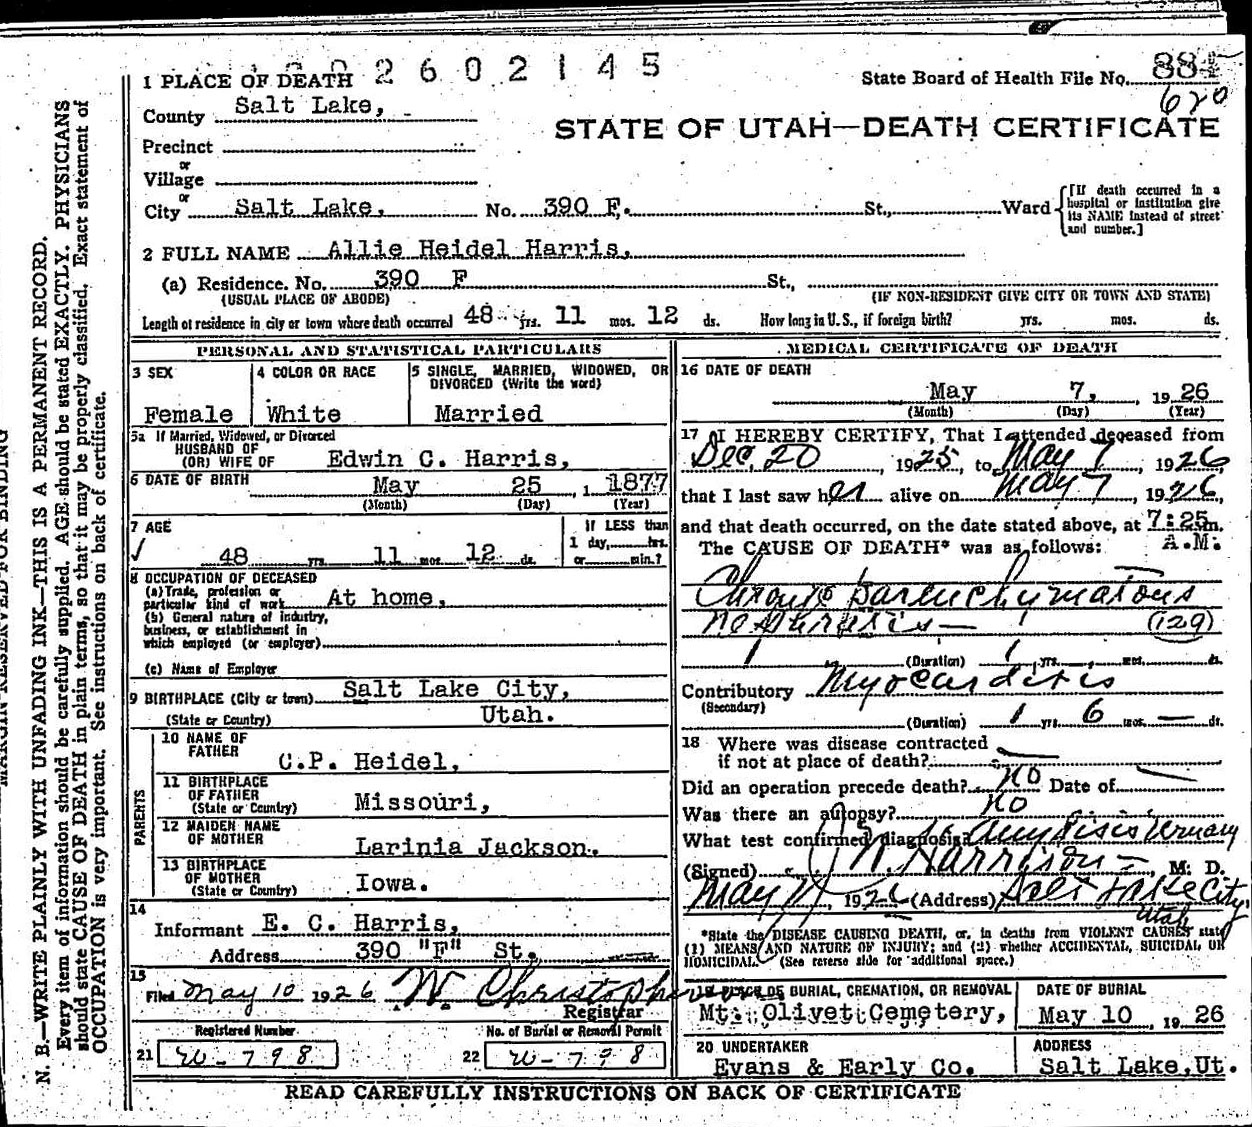 2602145
1 PLACE OF DEATH
State Board of Health File No. 884
620
County Salt Lake,
STATE OF UTAH—DEATH CERTIFICATE
Precinct
or
Village
or
City Salt Lake, No. 390 F. St., Ward
[If death occurred in a
hospital or institution give
its NAME instead of street
and number.]
2 FULL NAME Allie Heidel Harris,
(a) Residence. No. 390 F St.,
(USUAL PLACE OF ABODE) (IF NON-RESIDENT GIVE CITY OR TOWN AND STATE)
Length of residence in city or town where death occurred 48 yrs. 11 mos. 12 ds. How long in U. S., if foreign birth? yrs. mos. ds.
PERSONAL AND STATISTICAL PARTICULARS
3 SEX 4 COLOR OR RACE 5 SINGLE, MARRIED, WIDOWED, OR
DIVORCED (Write the word)
Female White Married
5a If Married, Widowed, or Divorced
HUSBAND OF
(OR) WIFE OF Edwin C. Harris,
6 DATE OF BIRTH May 25, 1877
(Month) (Day) (Year)
7 AGE If LESS than
1 day, hrs.
48 yrs 11 mos 12 ds. or min.?
8 OCCUPATION OF DECEASED
(a) Trade, profession or
particular kind of work At home,
(b) General nature of industry,
business, or establishment in
which employed (or employer)
(c) Name of Employer
9 BIRTHPLACE (City or town) Salt Lake City,
(State or Country) Utah.
PARENTS
10 NAME OF
FATHER C.P. Heidel,
11 BIRTHPLACE
OF FATHER
(State or Country) Missouri,
12 MAIDEN NAME
OF MOTHER Larinia Jackson.
13 BIRTHPLACE
OF MOTHER
(State or Country) Iowa.
14
Informant E. C. Harris,
Address 390 "F" St.
15
Filed May 10 1926 W. Christopherson
Registrar
Registered Number No. of Burial or Removal Permit
21 W-798 22 W-798
MEDICAL CERTIFICATE OF DEATH
16 DATE OF DEATH
May 7, 1926
(Month) (Day) (Year)
17 I HEREBY CERTIFY, That I attended deceased from
Dec. 20, 1925, to May 7, 1926
that I last saw her alive on May 7, 1926,
and that death occurred, on the date stated above, at 7:25 m.
The CAUSE OF DEATH* was as follows: A.M.
Chronic Parenchymatous
Nephritis— (129)
(Duration) 1 yrs. mos. ds.
Contributory Myocarditis
(Secondary)
(Duration) 1 yrs 6 mos — ds.
18 Where was disease contracted
if not at place of death?
Did an operation precede death? no Date of
Was there an autopsy? no
What test confirmed diagnosis?
(Signed) Harrison M. D.
May 1926 (Address) Salt Lake City,
Utah
*State the DISEASE CAUSING DEATH, or, in deaths from VIOLENT CAUSES state
(1) MEANS AND NATURE OF INJURY; and (2) whether ACCIDENTAL, SUICIDAL OR
HOMICIDAL. (See reverse side for additional space.)
19 PLACE OF BURIAL, CREMATION, OR REMOVAL DATE OF BURIAL
Mt. Olivet Cemetery, May 10, 1926
20 UNDERTAKER ADDRESS
Evans & Early Co. Salt Lake,Ut.
READ CAREFULLY INSTRUCTIONS ON BACK OF CERTIFICATE
MARGIN RESERVED FOR BINDING
N. B.—WRITE PLAINLY WITH UNFADING INK—THIS IS A PERMANENT RECORD.
Every item of information should be carefully supplied. AGE should be stated EXACTLY. PHYSICIANS
should state CAUSE OF DEATH in plain terms, so that it may be properly classified. Exact statement of
OCCUPATION is very important. See instructions on back of certificate.